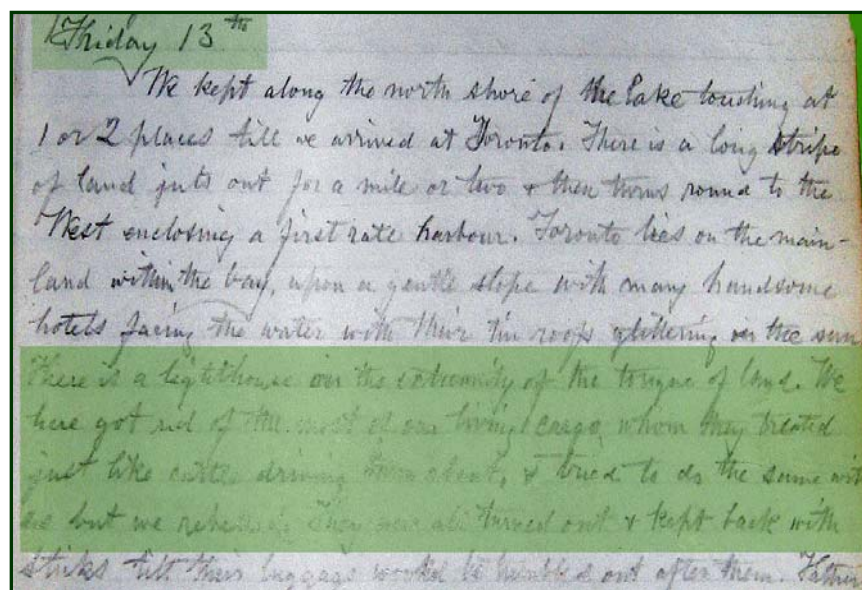 Friday 13th
We kept along the north shore of the Lake touching at
1 or 2 places till we arrived at Toronto. There is a long stripe
of land juts out for a mile or two & then turns round to the
West enclosing a first rate harbour. Toronto lies on the main-
land within the bay, upon a gentle slope with many handsome
hotels facing the water with their tin roofs glittering in the sun
There is a lighthouse on the extremity of the tongue of land. We
here got rid of the most of our living cargo, whom they treated
just like cattle driving them about, & tried to do the same with
us but we rebelled. They were all turned out & kept back with
sticks till their luggage would be tumbled out after them. Father